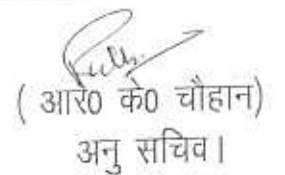 ( आर0 के0 चौहान)
अनु सचिव।